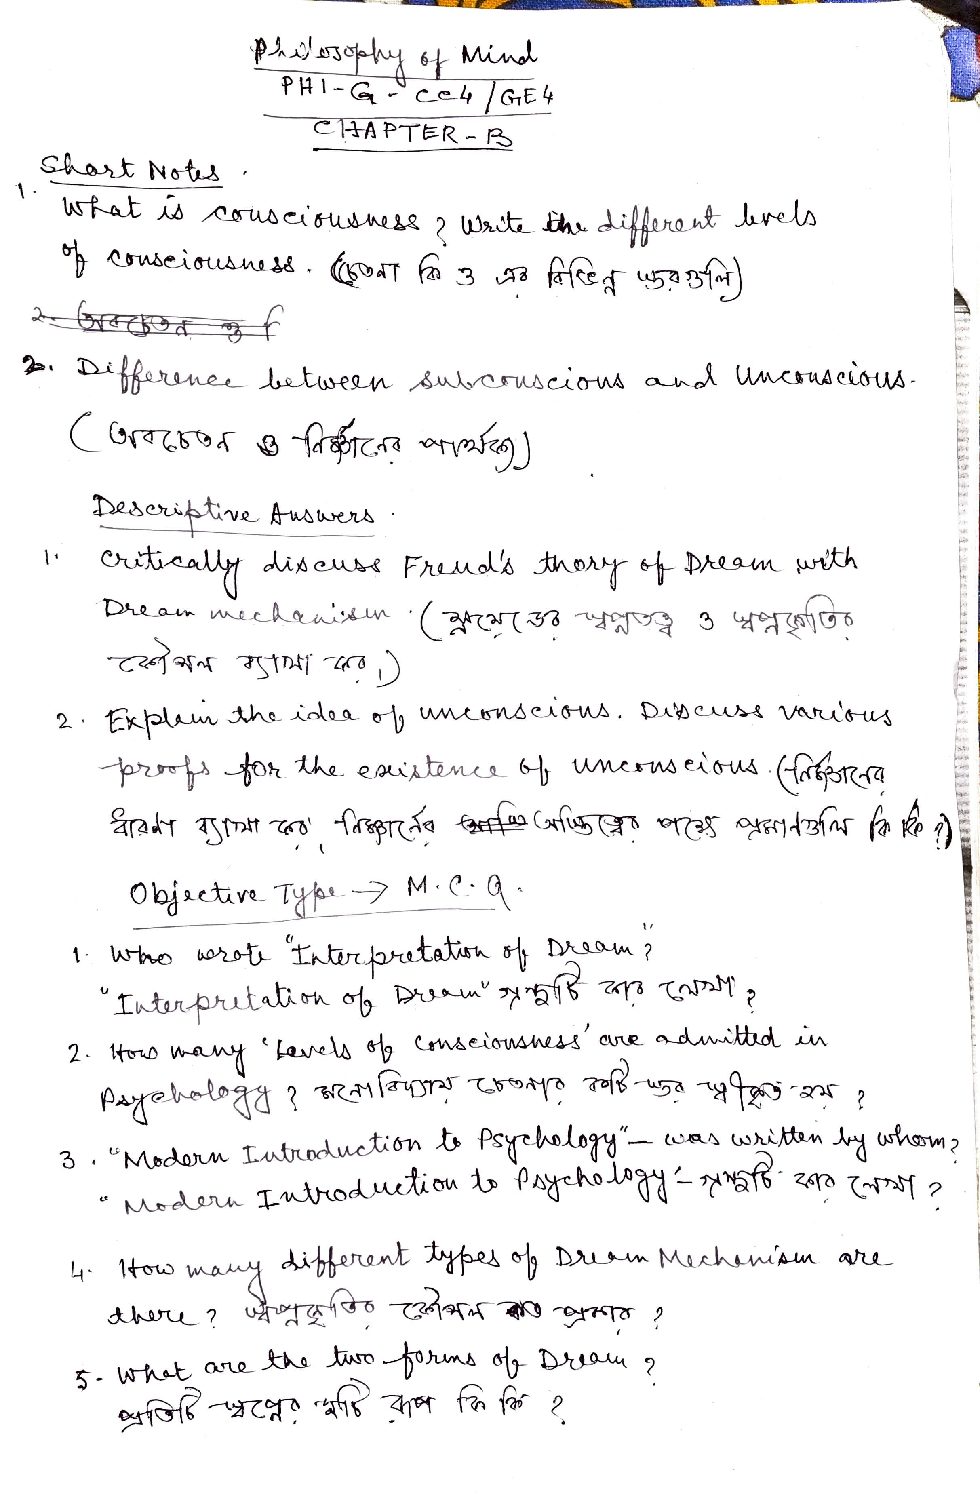 Philosophy of Mind
PHI-G-CC4/GE4
CHAPTER-B
Short Notes.
1.
What is consciousness? Write the different levels
of consciousness. (চেতনা কি ও এর বিভিন্ন স্তরগুলি)
2. অবচেতন ও
2. Difference between subconscious and Unconscious.
(অবচেতন ও নির্জ্ঞানের পার্থক্য)
Descriptive Answers.
1. Critically discuss Freud's thory of Dream with
Dream mechanism. (ফ্রয়েডের স্বপ্নতত্ত্ব ও স্বপ্নকৃতির
কৌশল ব্যাখ্যা কর।)
2. Explain the idea of unconscious. Discuss various
proofs for the existence of unconscious. (নির্জ্ঞানের
ধারণা ব্যাখ্যা কর, নির্জ্ঞানের অস্তিত্বের পক্ষে প্রমাণগুলি কি কি?)
Objective Type → M.C.Q.
1. Who wrote "Interpretation of Dream"?
"Interpretation of Dream" গ্রন্থটি কার লেখা?
2. How many 'Levels of Consciousness' are admitted in
Psychology? মনোবিদ্যায় চেতনার কটি স্তর স্বীকৃত হয়?
3. "Modern Introduction to Psychology"- was written by whom?
"Modern Introduction to Psychology'- গ্রন্থটি কার লেখা?
4. How many different types of Dream Mechanism are
there? স্বপ্নকৃতির কৌশল কত প্রকার?
5. What are the two forms of Dream?
প্রতিটি স্বপ্নের দুটি রূপ কি কি?